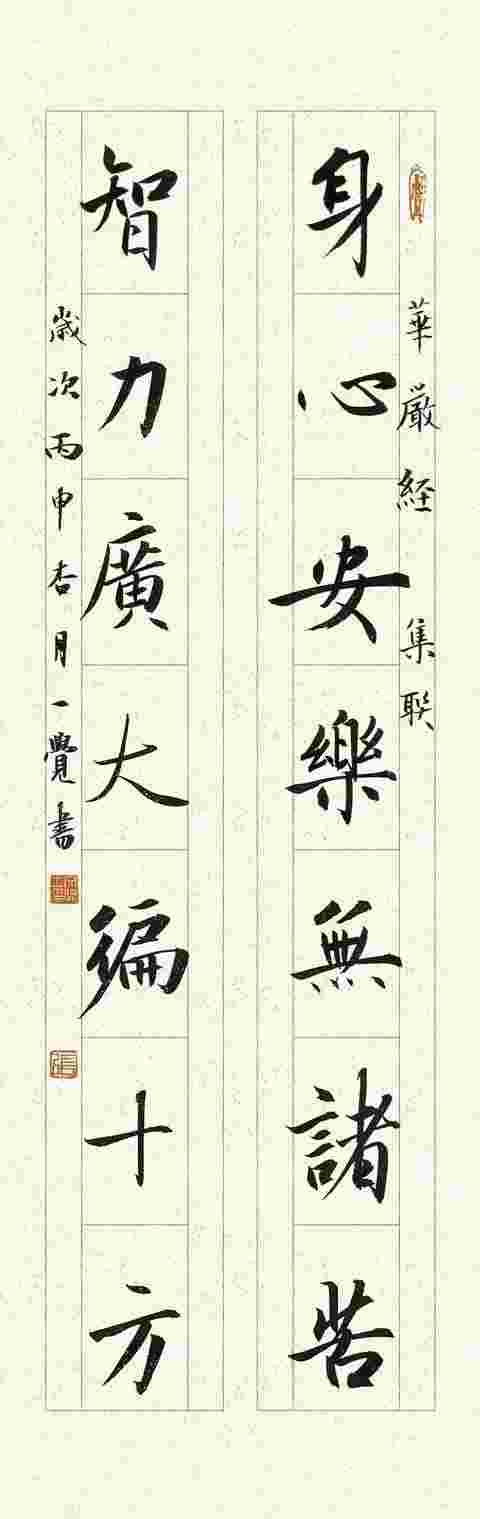 華嚴経 集联
身心安樂無諸苦
智力廣大徧十方
歲次丙申杏月一覺書